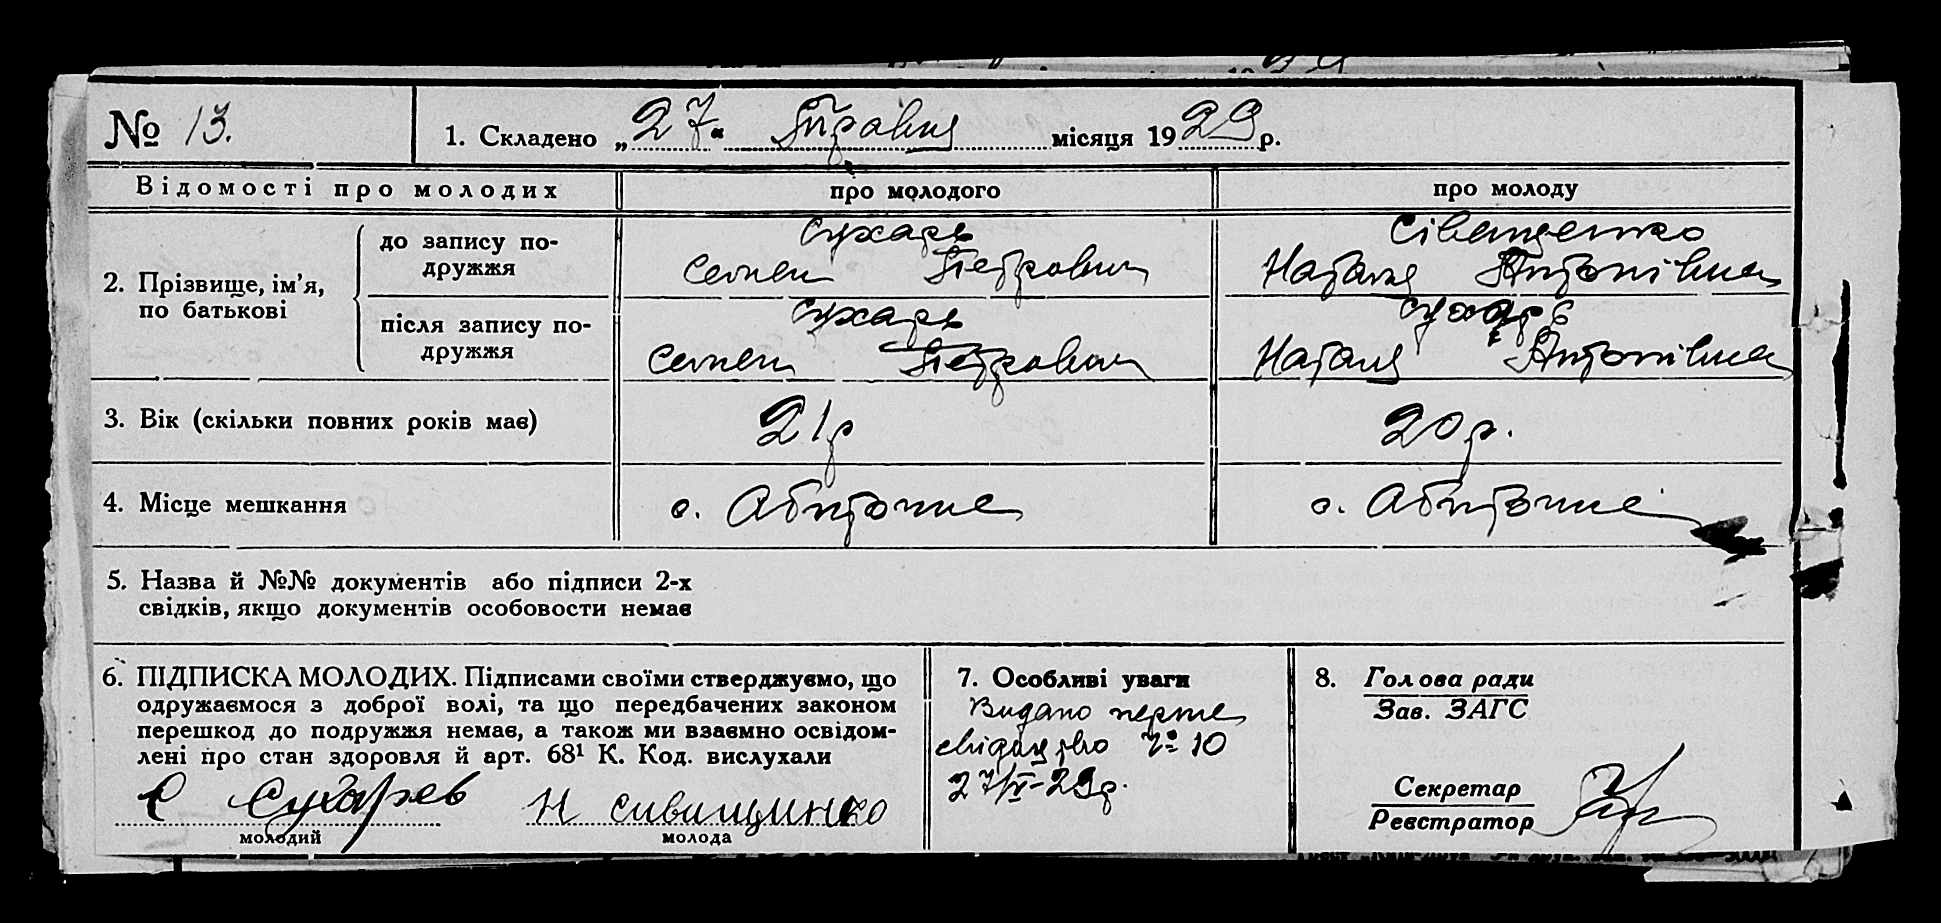 № 13.
1. Складено „27“ Травня місяця 1929 р.
Відомості про молодих
про молодого
про молоду
2. Прізвище, ім’я, по батькові
до запису подружжя
Сухарь
Семен Петрович
Сіващенко
Наталя Антонівна
після запису подружжя
Сухарь
Семен Петрович
Сухарь
Наталя Антонівна
3. Вік (скільки повних років має)
21р
20р.
4. Місце мешкання
с. Абиточне
с. Абиточне
5. Назва й №№ документів або підписи 2-х
свідків, якщо документів особовости немає
6. ПІДПИСКА МОЛОДИХ. Підписами своїми стверджуємо, що
одружаємося з доброї волі, та що передбачених законом
перешкод до подружжя немає, а також ми взаємно освідом-
лені про стан здоровля й арт. 68¹ К. Код. вислухали
С Сухарев
молодий
Н сиващинко
молода
7. Особливі уваги
Видано перше
свідоцтво № 10
27/V-29р.
8. Голова ради
Зав. ЗАГС
Секретар
Реєстратор